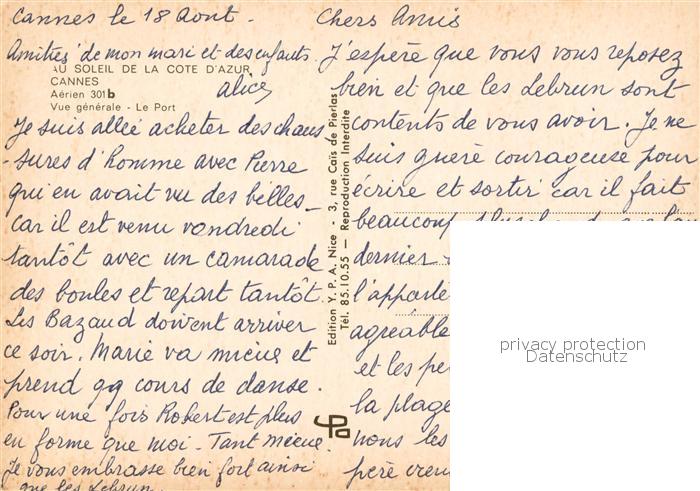 Cannes le 18 Aout.
Chers Amis
J'espère que vous vous reposez
bien et que les Lebrun sont
contents de vous avoir. Je ne
suis guère courageuse pour
écrire et sortir car il fait
beaucoup
dernier
l'apparte
agréable
et les pe
la plage
nous les
père
Je suis allée acheter des chaus
-sures d'homme avec Pierre
qui en avait vu des belles
car il est venu vendredi
tantôt avec un camarade
des boules et repart tantôt
Les Bazaud doivent arriver
ce soir. Marie va mieux et
prend qq cours de danse.
Pour une fois Robert est plus
en forme que moi. Tant mieux.
Je vous embrasse bien fort ainsi
que les Lebrun.
Amitiés de mon mari et des enfants.
Alice
AU SOLEIL DE LA COTE D'AZUR
CANNES
Aérien 301 b
Vue générale - Le Port
Edition Y. P. A. Nice - 3, rue Caïs de Pierlas
Tél. 85.10.55 — Reproduction Interdite
privacy protection
Datenschutz